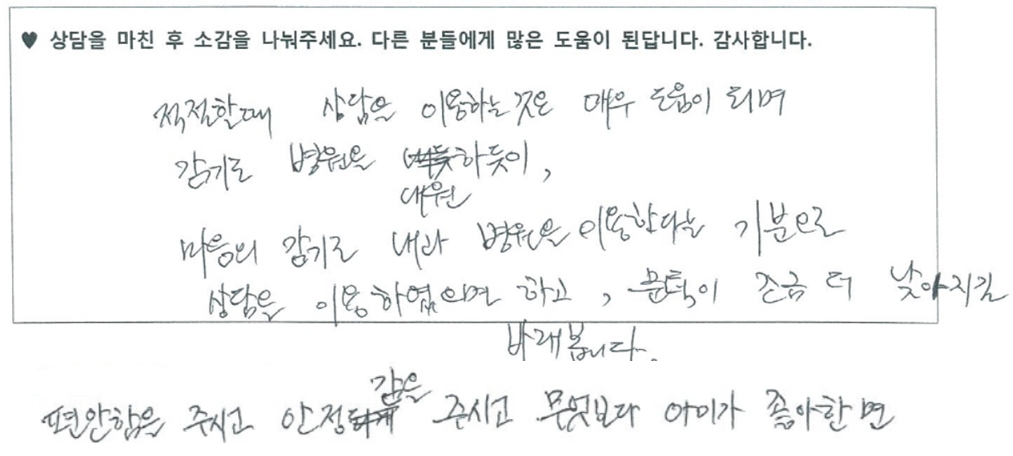 ♥ 상담을 마친 후 소감을 나눠주세요. 다른 분들에게 많은 도움이 된답니다. 감사합니다.
적절할때 상담을 이용하는것은 매우 도움이 되며
감기로 병원을 내원하듯이,
마음의 감기로 내과 병원을 이용한다는 기분으로
상담을 이용하였으면 하고, 문턱이 조금 더 낮아지길
바래봅니다.
편안함을 주시고 안정감을 주시고 무엇보다 아이가 좋아한면